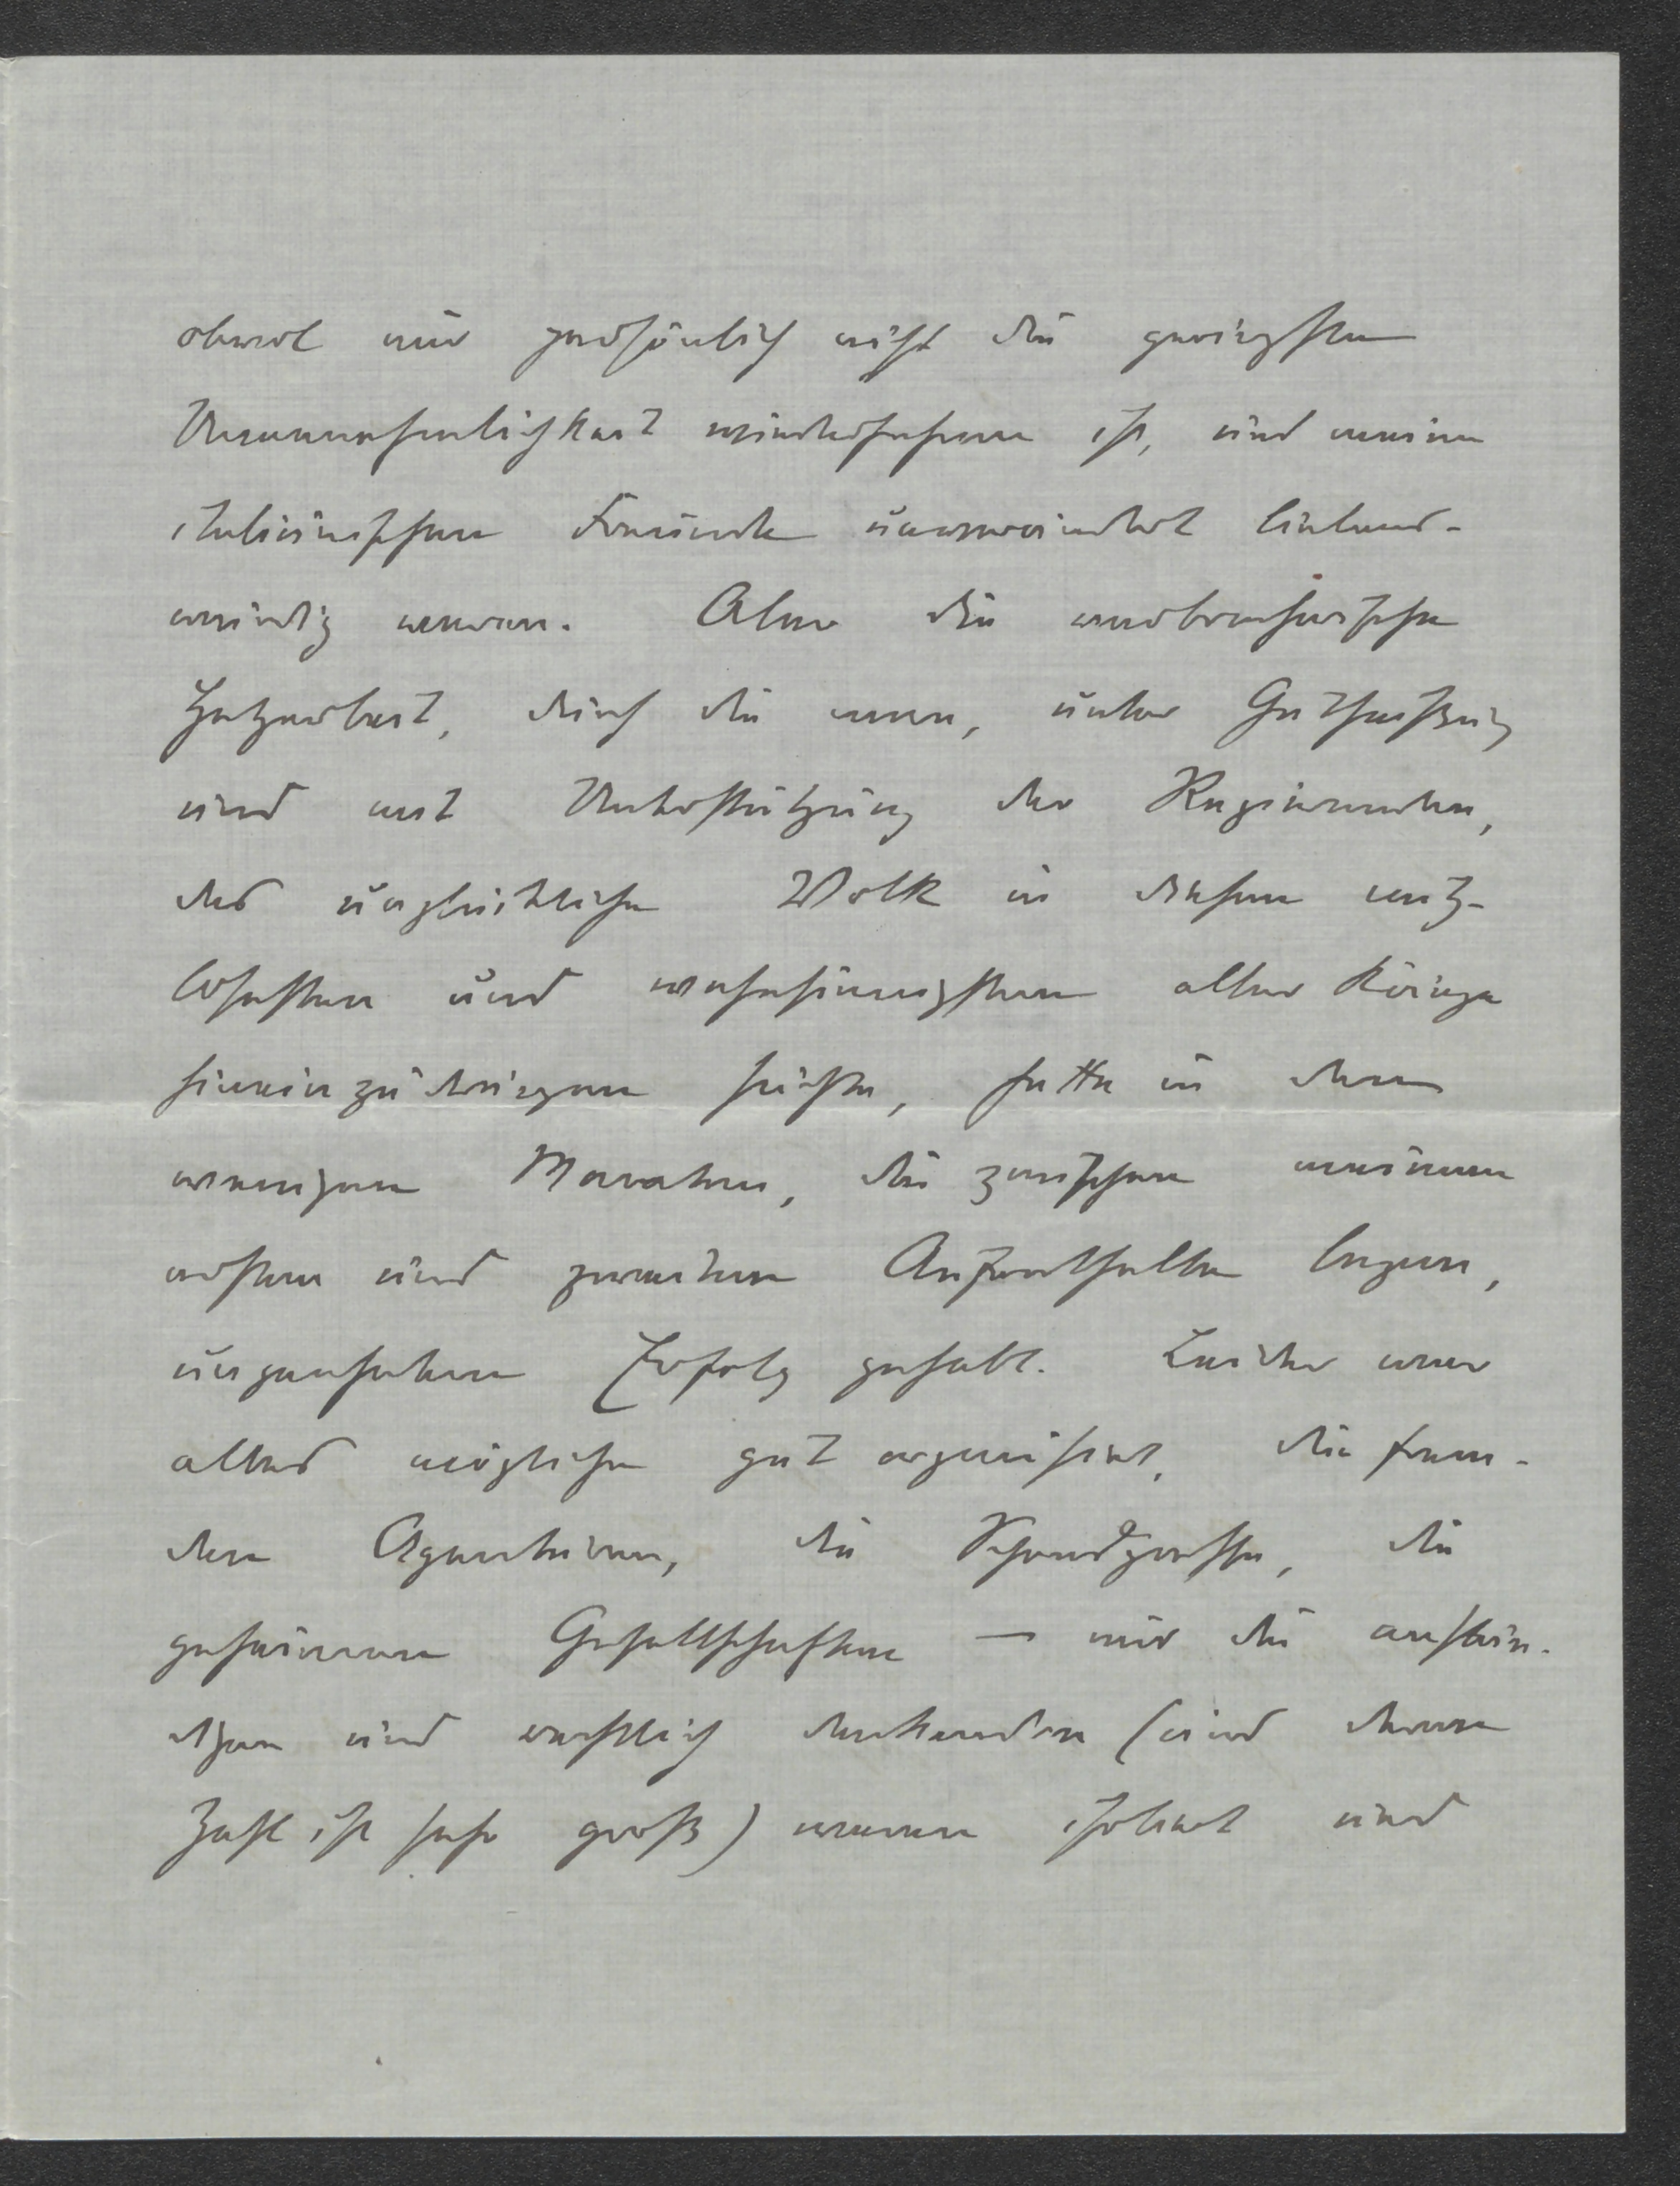 obwol mir persönlich nicht die geringste
Unannehmlichkeit widerfahren ist, und meine
italiänischen Freunde unverändert liebens-
würdig waren. Aber die verbrecherische
Hetzarbeit, durch die man, unter Gutheißung
und mit Unterstützung der Regierenden,
das unglückliche Volk in diesen nutz-
losesten und wahnsinnigsten aller Kriege
hineinzudrängen suchte, hatte in den
wenigen Monaten, die zwischen meinem
ersten und zweiten Aufenthalte lagen,
ungeheuren Erfolg gehabt. Leider war
alles mögliche gut organisiert, die frem-
den Agenturen, die Schandpresse, die
geheimen Gesellschaften — nur die anstän-
digen und rechtlich denkenden (und deren
Zahl ist sehr groß) waren isoliert und